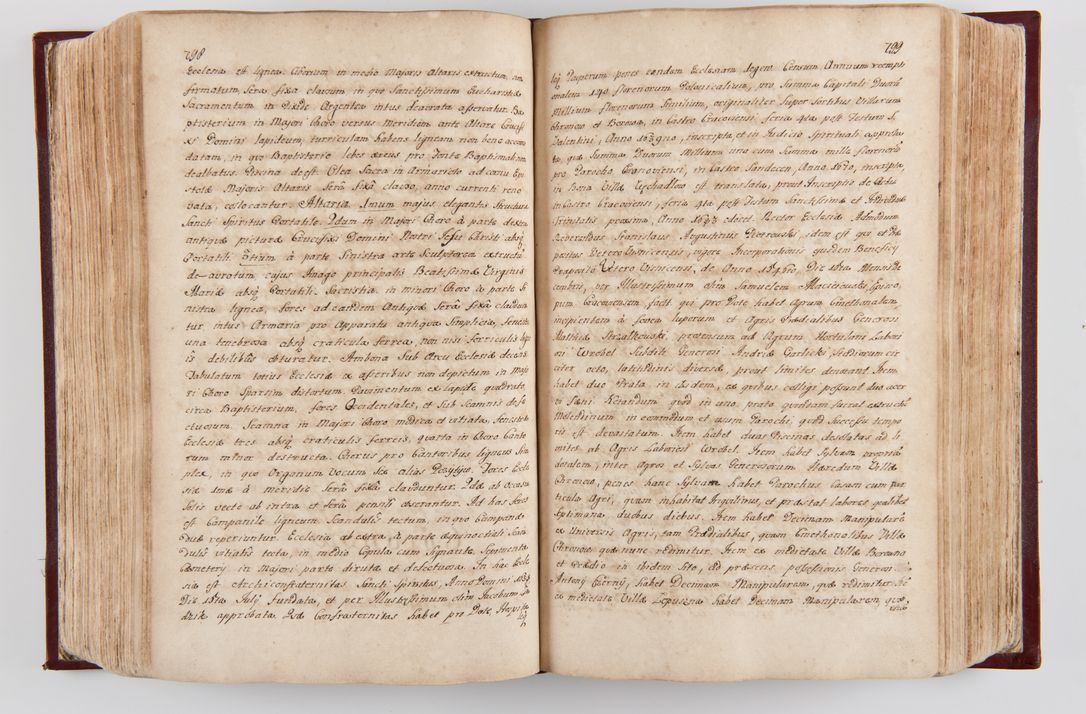 798
Ecclesia est lignea. Ciborium in medio Majoris Altaris extructum, con
firmatum, Serâ fixâ clausum in quo Sanctissimum Eucharistiæ
Sacramentum in Pixide Argentea intus deaurata asservatur. Ba
ptisterium in Majori Choro versus Meridiem ante Altare Crucifi
xi Domini lapideum, turriculam habens ligneam non bene accom
datam, in quo Baptisterio lebes æreus pro Fonte Baptismali
dealbatus. Piscina deest. Olea Sacra in Armariolo ad cornu Epi
stolæ Majoris Altaris Serâ fixâ clauso, anno currenti reno
vata, collocantur. Altaria. Imum majus elegantis Structuræ
Sancti Spiritus Portatile. 2dum in Majori Choro à parte dextra
antiquæ picturæ Crucifixi Domini Nostri Jesu Christi absq
Portatili. 3tium à parte Sinistra arte Sculptorea extructũ
de-auratum, cujus Imago principalis Beatissimæ Virginis
Mariæ absq Portatili. Sacristia in minori Choro à parte Si
nistra lignea, fores ad eandem Antiquæ Serâ fixâ claudun
tur, intus Armaria pro Apparatu antiqua Simplicia, Fenestra
una tenebrosa absq craticula ferrea, non nisi ferriculis
is debilibus obturatur. Ambona Sub Arcu Ecclesiæ decens
Tabulatum totius Ecclesiæ ex asseribus non depictum in Majo
ri Choro Sparsim distortum. Pavimentum ex lapide quadrato,
circa Baptisterium, fores Occidentales, et Sub Scamnis defe
ctuosum. Scamna in Majori Choro modica et vitiata. Fenestræ
Ecclesiæ tres absq craticulis ferreis, quarta in Choro Canto
rum minor destructa. Chorus pro Cantoribus ligneus Sim
plex, in quo Organum Vocum Sex alias Pozytyw. Fores Eccle
siæ Imæ à meridie Serâ fixâ clauduntur. 2dæ ab occasu
Solis vecte ab intra et Serâ pensili obserantur. Ad has fores
est Campanile ligneum Scandulis tectum, in quo Campanæ
Duæ reperiuntur. Ecclesia ab extra, à parte Scan
dulis vitiatis tecta, in medio Cupula cum Signante, Sepimenta
Cæmetery in Majori parte diruta et defectuosa. In hac Eccle
sia est Archiconfraternitas Sancti Spiritus, Anno Domini
Die 18va July Fundata, et per Illustrissimum olim Jacobum
dzik approbata. Quæ Confraternitas habet pro Dote, Hospita
lis
799
lis Pauperum penes eandem Ecclesiam degen Censum Annuum reempti
onalem 140 florenorum Polonicalium, pro Summa Capitali Duorũ
Millium florenorum Similium, originaliter Super Sortibus Villarum
Chronow et Borowa, in Castro Cracoviensi, feria 4ta post Festum S.
Valentini, Anno inscripta, et in Judicio Spirituali approba
ta, quæ Summa Duorum Millium una cum Summa mille florenorũ
pro Parocho Cranoviensi, in Castro Sandecen, Anno 1670, inscripta,
in Bona Villæ est translata, prout Inscriptio de
in Castro Cracoviensi, feria 4ta post Festum Sanctissimæ et Individuæ
Trinitatis proxima, Anno edocet. Rector Ecclesiæ Admodum
Reverendus Stanislaus Augustinus idem est qui et Præ
positus Vetero Visnicensis, vigore Incorporationis ejusdem Beneficy
Præposito Vetero Visnicensi, de Anno Die 18va Mensis De
cembris, per Illustrissimum olim Samuelem Maciejowski, Episco
pum Cracoviensem, facti qui pro Dote habet Agrum Cmethonalem
incipientem à fovea luporum et Agris Prædialibus Generosi
Mathiæ Strzałkowski, protensum ad Agrum Hortulani Labori
osi Wrobel Subditi Generosi Andreæ Garlicki, Stadiorum cir
citer octo, latitudinis diversæ, prout limites denotant. Item
habet duo Prata, in eisdem, ex quibus colligi possunt duo acer
vi Fæni. Notandum quod in uno prato quondam fuerat extructũ
Molendinum in commodum et usum Parochi, quod Successu tempo
ris est devastatum. Item habet duas Piscinas desolatas ad li
mites ab Agris Laboriosi Wrobel. Item habet Sylvam propriã
dotalem, inter Agros et Sylvas Generosorum Hæredum Villæ
Chronow, penes hanc Sylvam habet Parochus Casam cum par
ticula Agri, quam inhabitat Inquilinus, et præstat labores qualibet
Septimana duobus diebus. Item habet Decimam Manipularẽ
ex Universis Agris, tam Prædialibus, quam Cmethonalibus Villæ
Chronow quæ nunc redimitur. Item ex medietate Villæ Borowna
et Prædio in ibidem Sito, ad præsens possessionis Generosi
Antony Czerny, habet Decimam Manipularem, quæ redimitur. Itẽ
ex medietate Villæ Łopuszna habet Decimam Manipularem, quæ